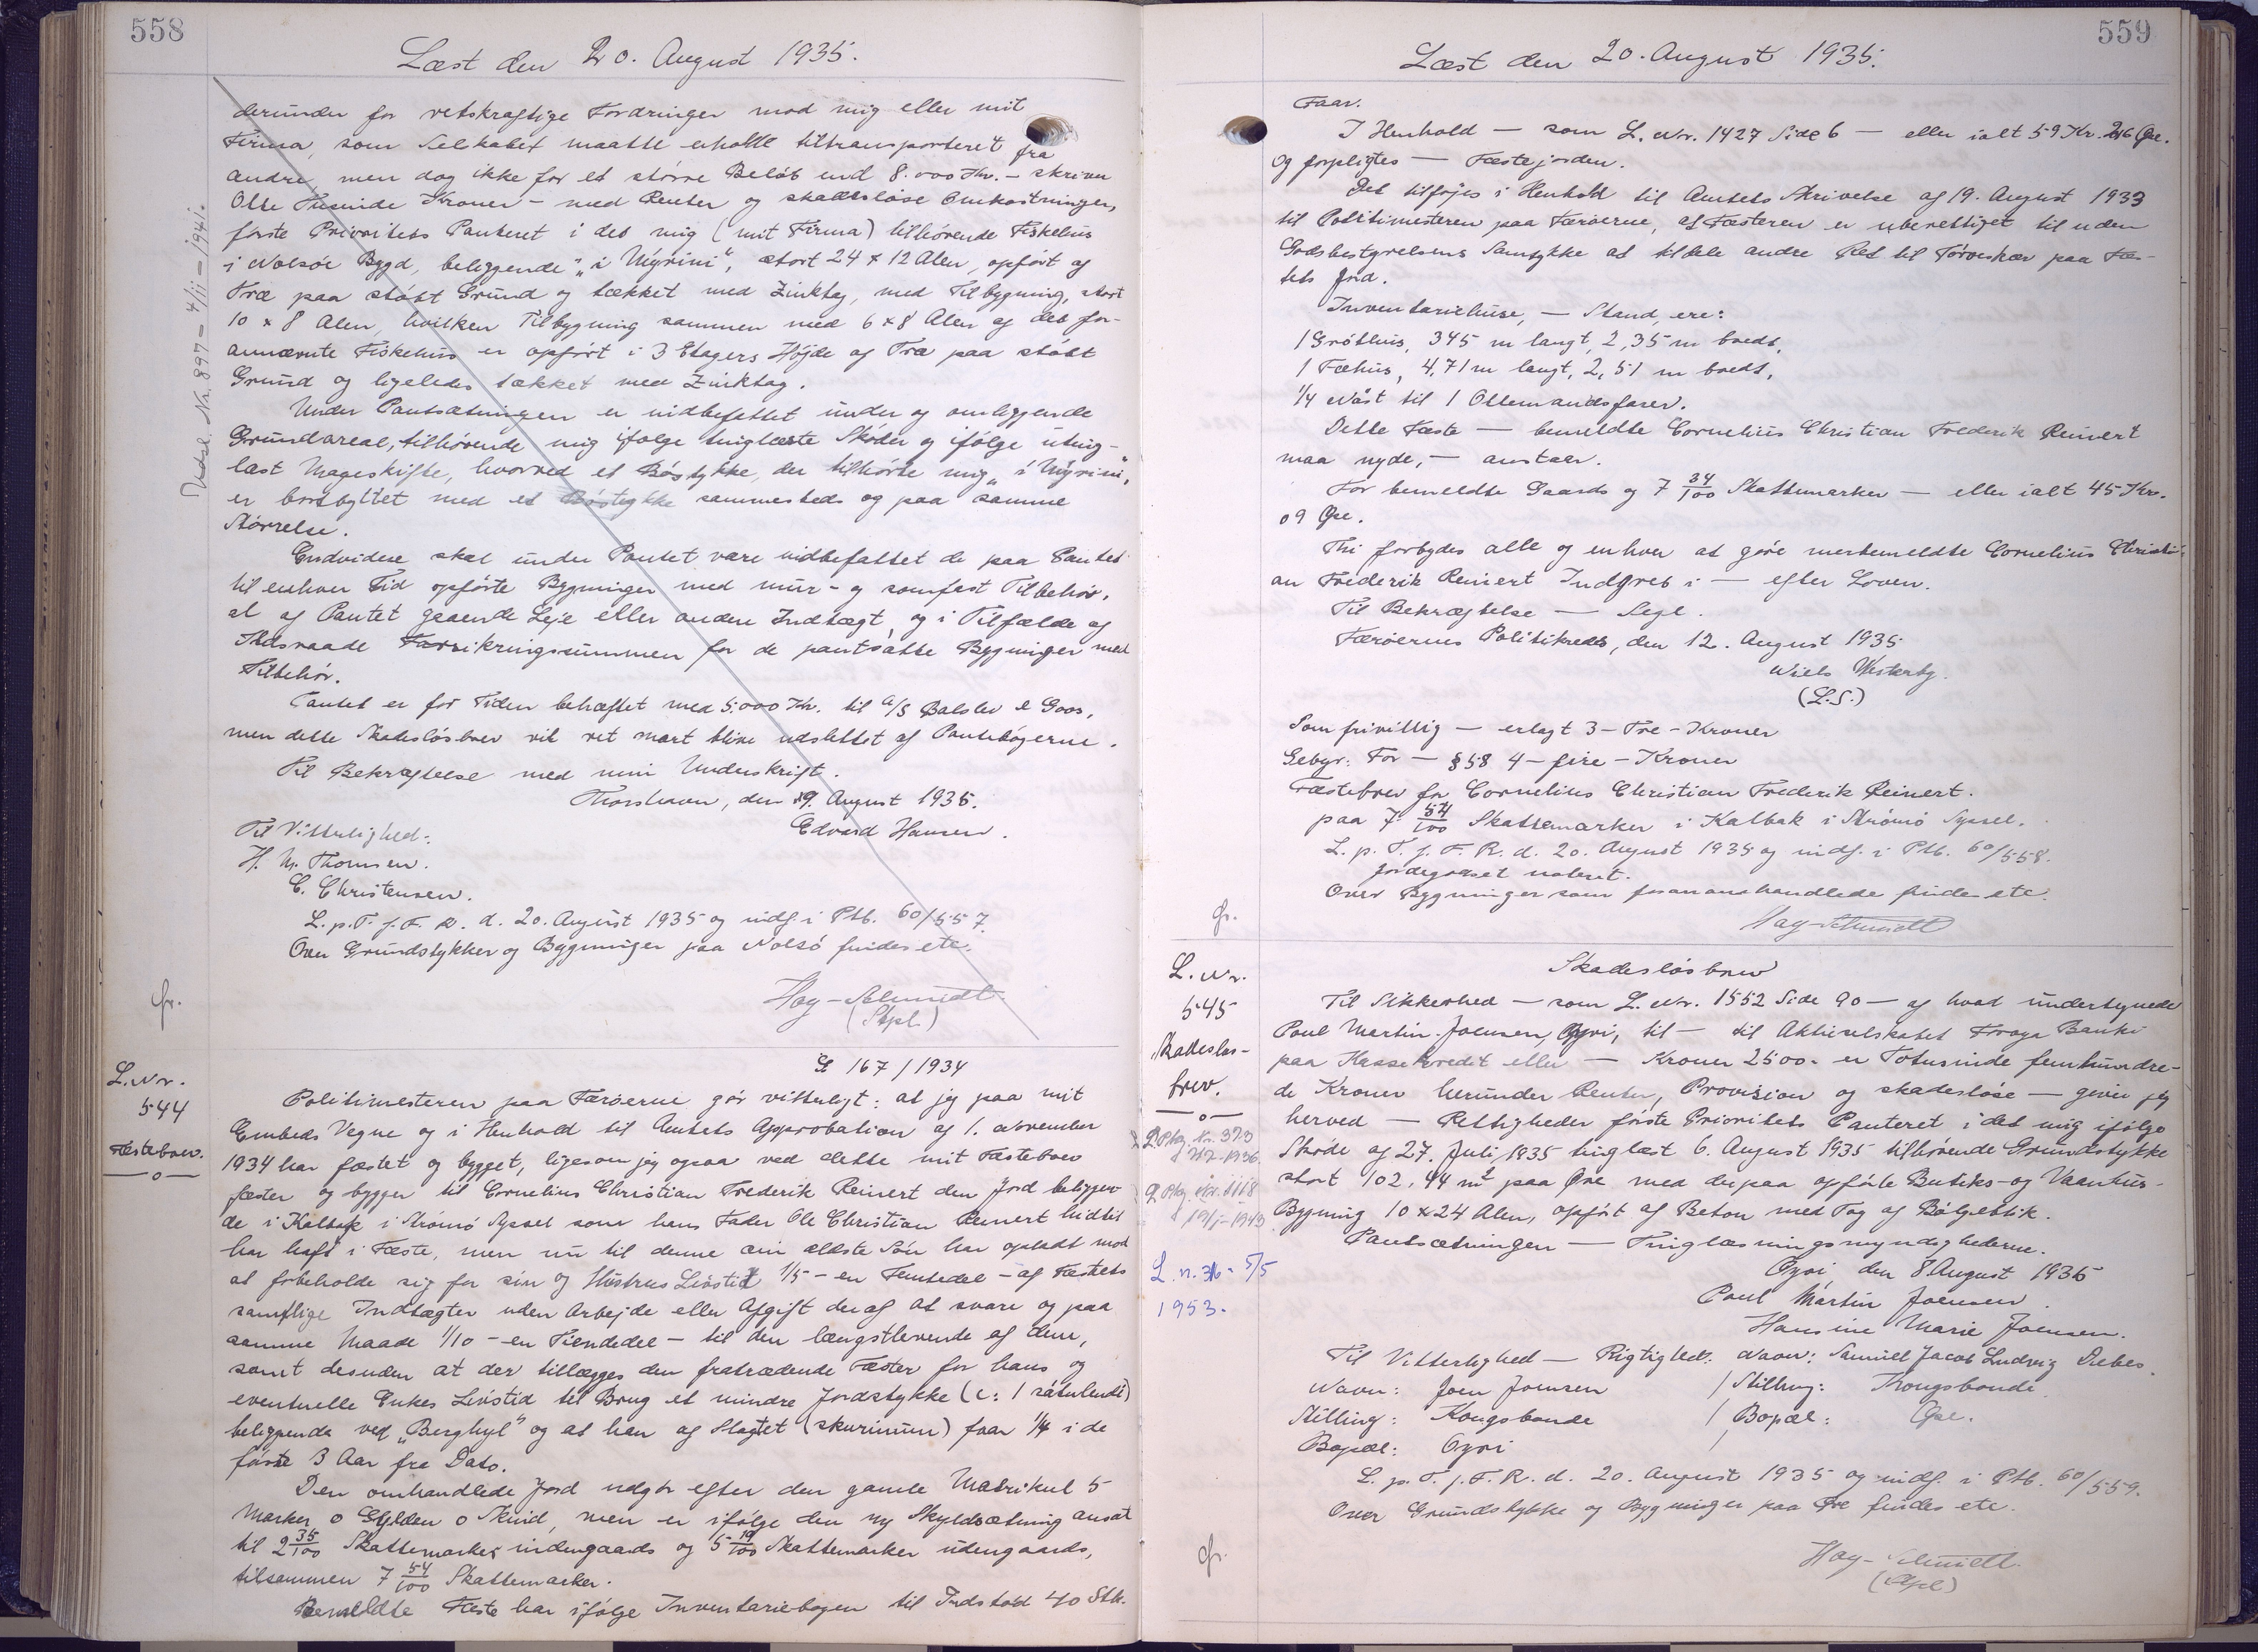 558
Læst den 20. August 1935.
derunder for retskraftige Fordringer mod mig eller mit
Firma, som Selskabet maatte erholde tiltransporteret fra
andre, men dog ikke for et større Beløb end 8.000 Kr. - skriver
Otte Tusinde Kroner - med Renter og skadesløse Omkostninger,
første Prioritets Panteret i det mig (mit Firma) tilhørende Fiskehus
i Nolsöe Bygd, beliggende "i Mýrini", stort 24 x 12 Alen, opført af
Træ paa støbt Grund og tækket med Zinktag, med Tilbygning, stort
10 x 8 Alen, hvilken Tilbygning sammen med 6 x 8 Alen af det for-
annævnte Fiskehus er opført i 3 Etagers Højde af Træ paa støbt
Grund og ligeledes tækket med Zinktag.
Under Pantsætningen er indbefattet under og omliggende
Grundareal, tilhørende mig ifølge tinglæste Skøder og ifølge uting-
læst Mageskifte, hvorved et Bøstykke, der tilhørte mig "i Mýrini",
er bortbyttet med et Bøstykke sammesteds og paa samme
Størrelse.
Endvidere skal under Pantet være indbefattet de paa Pantet
til enhver Tid opførte Bygninger med mur- og sømfast Tilbehør,
al af Pantet gaaende Leje eller anden Indtægt, og i Tilfælde af
Ildsvaade Forsikringssummen for de pantsatte Bygninger med
Tilbehør.
Pantet er for Tiden behæftet med 5.000 Kr. til A/S Balslev & Goos,
men dette Skadesløsbrev vil ret snart blive udslettet af Pantebøgerne.
Til Bekræftelse med min Underskrift.
Thorshavn, den 19. August 1935.
Edvard Hansen.
Til Vitterlighed:
H. M. Thomsen.
C. Christensen.
L. p. T. f. F. R. d. 20. August 1935 og indf. i Ptb. 60/557.
Over Grundstykker og Bygninger paa Nolsö findes etc.
Hay-Schmidt
(Stpl.)
Udsl. Nr. 897 - 4/11 - 1941.
L. Nr.
544
Fæstebrev.
G 167/1934
Politimesteren paa Færøerne gör vitterligt: at jeg paa mit
Embeds Vegne og i Henhold til Amtets Approbation af 1. November
1934 har fæstet og bygget, ligesom jeg ogsaa ved dette mit Fæstebrev
fæster og bygger til Cornelius Christian Frederik Reinert den Jord beliggen-
de i Kalbak i Strömö Syssel som hans Fader Ole Christian Reinert hidtil
har haft i Fæste, men nu til denne sin ældste Sön har opladt mod
at forbeholde sig for sin og Hustrus Livstid 1/5 - en Femtedel - af Fæstets
samtlige Indtægter uden Arbejde eller Afgift deraf at svare og paa
samme Maade 1/10 - en Tiendedel - til den længstlevende af dem,
samt desuden at der tillægges den fratrædende Fæster for hans og
eventuelle Enkes Livstid til Brug et mindre Jordstykke (c: 1 sátulendi)
beliggende ved "Berghyl" og at han af Slagtet (skurinum) faar 1/4 i de
første 3 Aar fra Dato.
Den omhandlede Jord udgör efter den gamle Matrikul 5
Marker 0 Gylden 0 Skind, men er ifølge den ny Skyldsætning ansat
til 2 35/100 Skattemarker indengaards og 5 19/100 Skattemarker udengaards,
tilsammen 7 54/100 Skattemarker.
Bemeldte Fæste har ifølge Inventariebogen til Indstöd 40 Stk.
559
Læst den 20. August 1935.
Faar.
I Henhold — som L. Nr. 1427 Side 6 — eller ialt 59 Kr. 246 Øre.
Og forpligtes — Fæstejorden.
Det tilføjes i Henhold til Amtets Skrivelse af 19. August 1933
til Politimesteren paa Færöerne, at Fæsteren er uberettiget til uden
Godsbestyrelsens Samtykke at tildele andre Ret til Törveskær paa Fæs-
tets Jord.
Inventariehuse, — Stand, ere:
1 Gróthus, 345 m langt, 2,35 m bredt,
1 Fæhus, 4,71 m langt, 2,51 m bredt,
1/4 Nåst til 1 Ottemandsfarer.
Dette Fæste — bemeldte Cornelius Christian Frederik Reinert
maa nyde, — anstaar.
For bemeldte Gaards og 7 34/100 Skattemarker — eller ialt 45 Kr.
09 Øre.
Thi forbydes alle og enhver at göre merbemeldte Cornelius Christi-
an Frederik Reinert Indgreb i — efter Loven.
Til Bekræftelse — Segl.
Færöernes Politikreds, den 12. August 1935
Niels Westerby.
(L.S.)
Som frivillig — erlagt 3 - Tre - Kroner
Gebyr: For — § 58 4 - fire - Kroner
Fæstebrev for Cornelius Christian Frederik Reinert.
paa 7 54/100 Skattemarker i Kalbak i Strömö Syssel.
L. p. T. f. F. R. d. 20. August 1935 og indf. i Ptb. 60/558.
Jordegodset noteret.
Over Bygninger som foranomhandlede findes etc.
Hay-Schmidt
L. Nr.
545
Skadesløs-
brev.
L. n. 36 - 5/5
1953.
Skadesløsbrev
Til Sikkerhed — som L. Nr. 1552 Side 90 — af hvad undertegnede
Poul Martin Joensen, Oyri, til — til Aktieselskabet Froya Banki
paa Kassekredit eller — Kroner 2500 - er Totusinde femhundre-
de Kroner herunder Renter, Provision og skadesløse — giver jeg
herved — Rettigheder første Prioritets Panteret i det mig ifølge
Skøde af 27. Juli 1835 tinglæst 6. August 1935 tilhørende Grundstykke
stort 102,44 m² paa Øre med derpaa opførte Butiks- og Vaanhus-
Bygning 10 x 24 Alen, opført af Beton med Tag af Bølgeblik.
Pantsætningen — Tinglæsningsmyndighederne.
Oyri, den 8 August 1935
Poul Martin Joensen.
Hansine Marie Joensen.
Til Vitterlighed — Rigtighed. Navn: Samuel Jacob Ludvig Debes.
Navn: Joen Joensen / Stilling: Kongsbonde.
Stilling: Kongsbonde / Bopæl: Øre.
Bopæl: Oyri /
L. p. T. f. F. R. d. 20. August 1935 og indf. i Ptb. 60/559.
Over Grundstykke og Bygninger paa Øre findes etc.
Hay-Schmidt.
(Stpl)